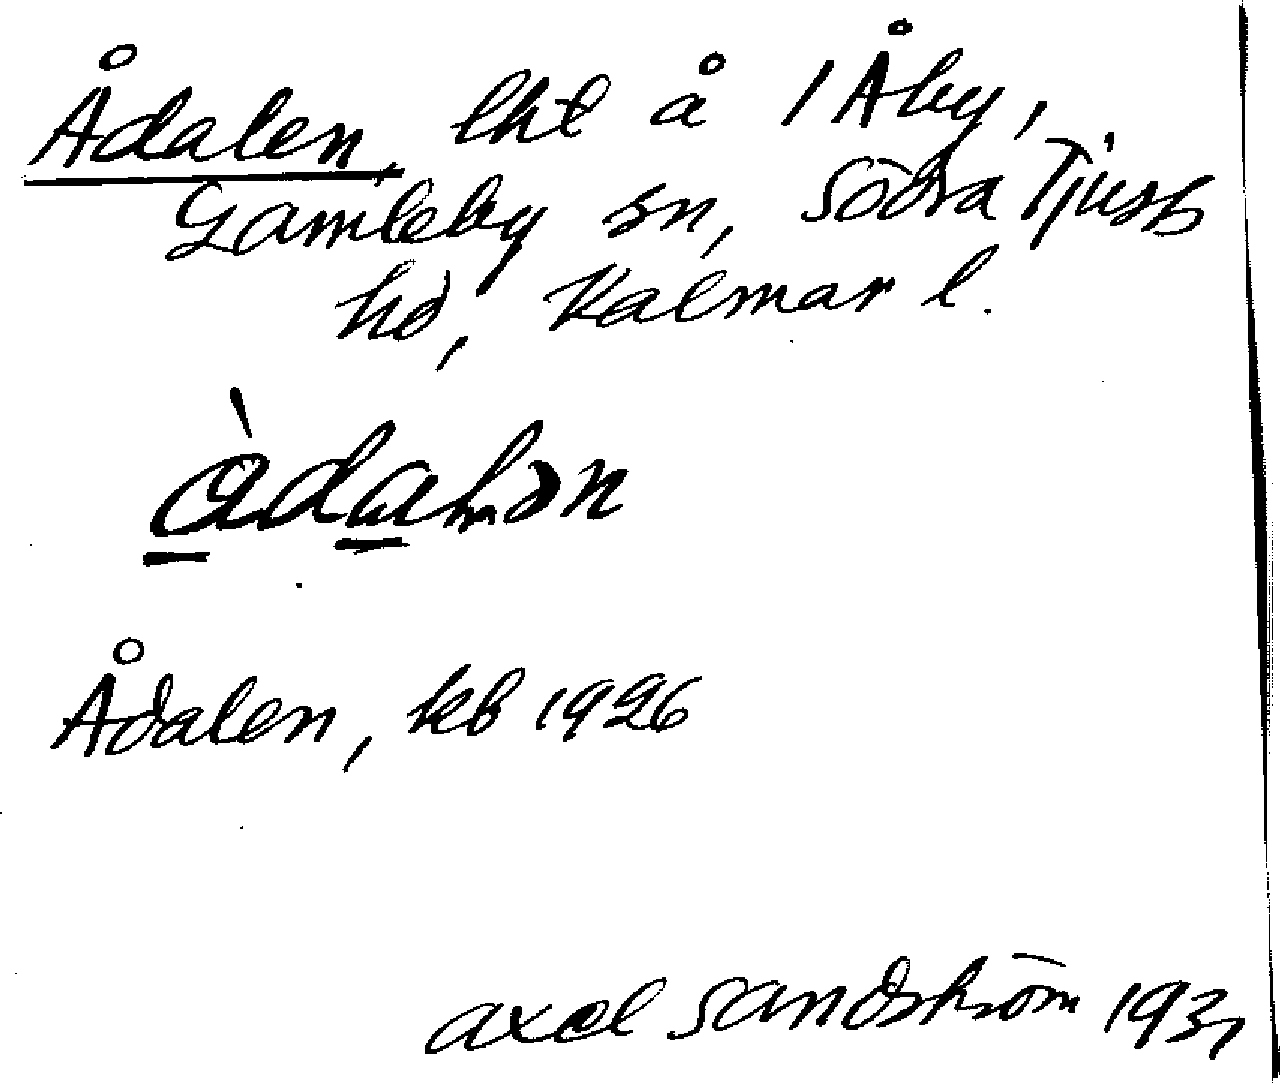 Ådalen, lht å 1 Åby,
Gamleby sn, Södra Tjusts
hd, Kalmar l.
Ådalen, kb 1926
Axel Sandström 1937